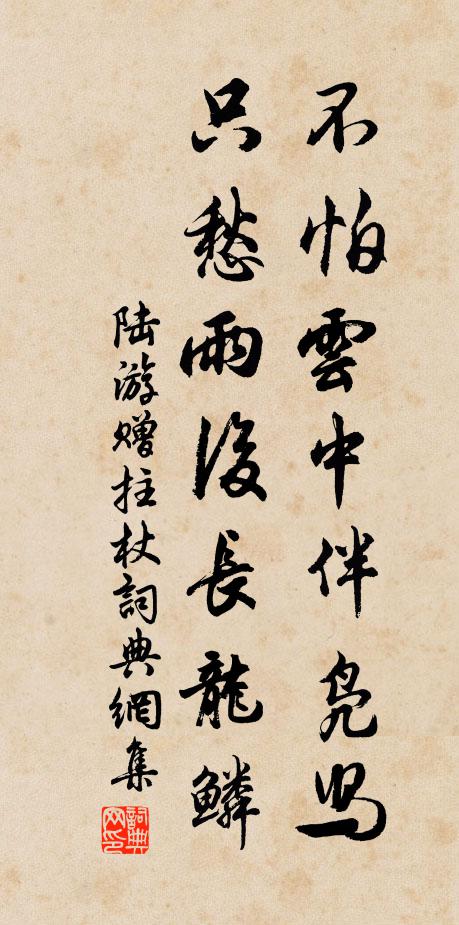 不怕雲中伴鳧舄
只愁雨後長龍鱗
陸游贈拄杖詞典網集
詞典网印